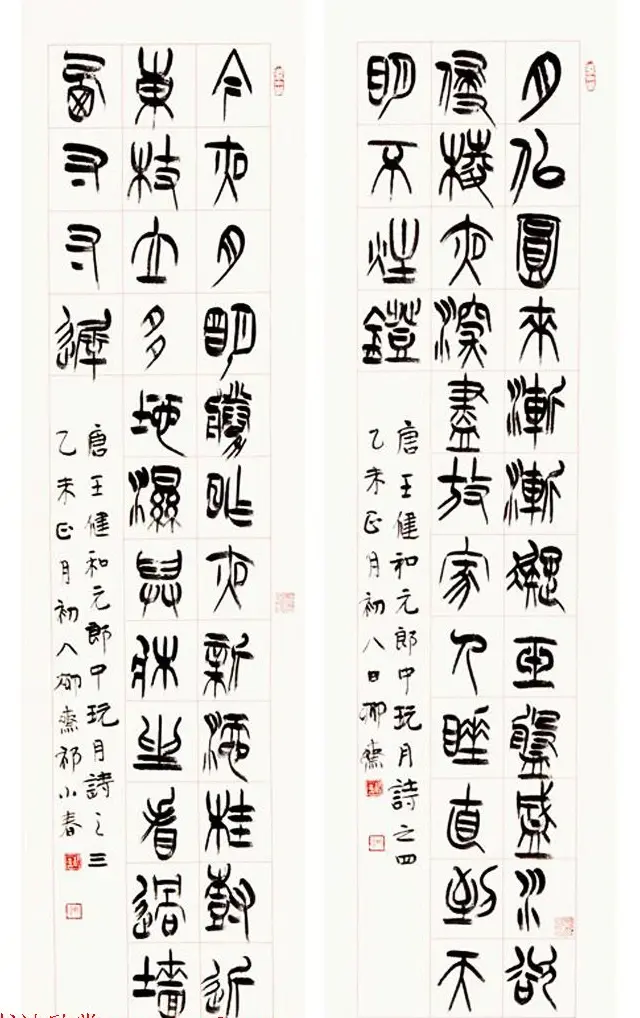 月似圓來漸漸凝玉盤盛水欲
侵棱夜深盡放家人睡直到天
明不炷鐙
唐王健和元郎中玩月詩之四
乙未正月初八日柳齋
今夜月明勝昨夜新添桂樹近
東枝立多地濕舁牀坐看過牆
西寸寸遲
唐王健和元郎中玩月詩之三
乙未正月初八柳齋祁小春